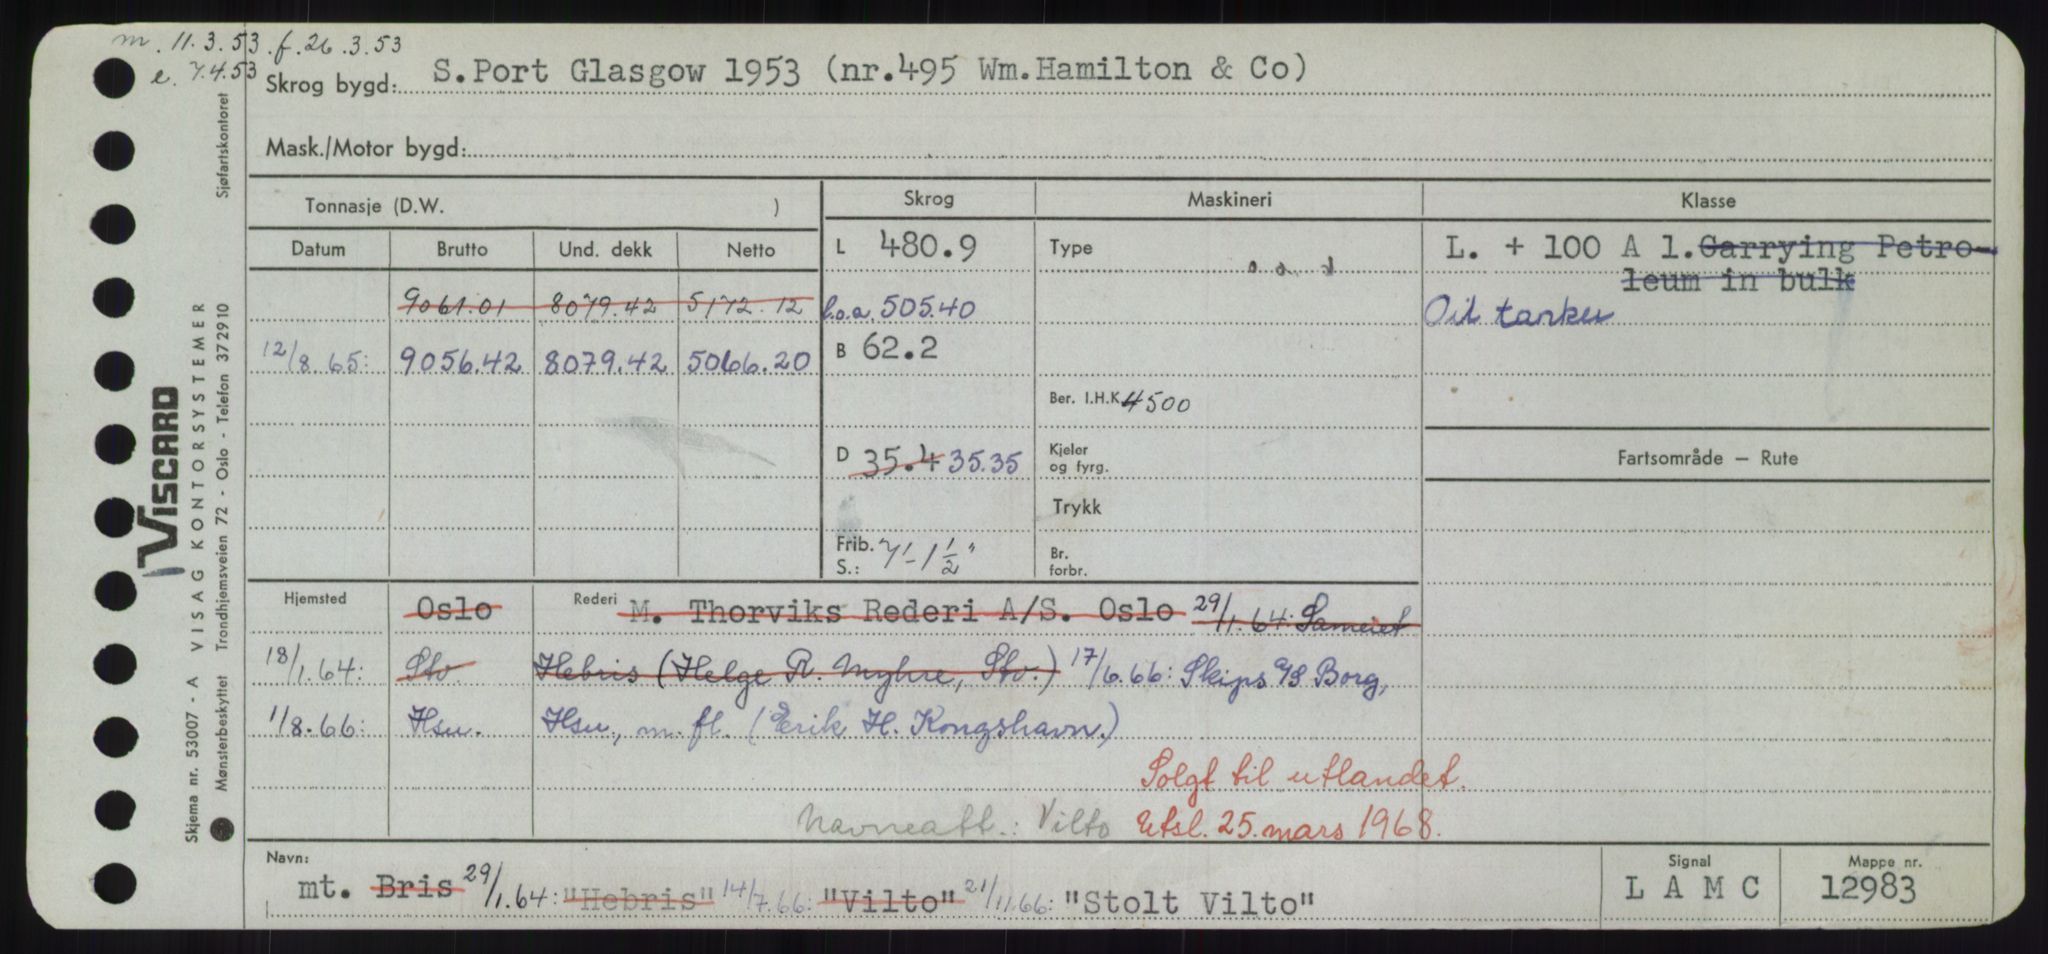 m. 11.3.53. f. 26.3.53
e. 7.4.53
Skrog bygd: S.Port Glasgow 1953 (nr.495 Wm.Hamilton & Co)
Mask./Motor bygd:
Tonnasje (D.W. ) Skrog Maskineri Klasse
Datum Brutto Und. dekk Netto L 480.9 Type L. + 100 A 1. Carrying Petro-
leum in bulk
9061.01 8079.42 5172.12 l.o.a. 505.40 Oil tanker
12/8.65: 9056.42 8079.42 5066.20 B 62.2
Ber. I.H.K 4500
D 35.4 35.35 Kjeler og fyrg. Fartsområde — Rute
Trykk
Frib. S.: 7'-1 1/2" Br. forbr.
Hjemsted Oslo Rederi M. Thorviks Rederi A/S. Oslo 29/1.64: Sameiet
18/1.64: Stv. Hebris (Helge R. Myhre, Stv.) 17/6.66: Skips A/S Borg,
1/8.66: Hsu. Hsu., m.fl. (Erik H. Kongshavn.)
Solgt til utlandet.
Navneatt.: Vilto Utsl. 25. mars 1968.
Navn:
mt. Bris 29/1.64: "Hebris" 14/7.66: "Vilto" 21/11.66: "Stolt Vilto"
Signal
L A M C
Mappe nr.
12983
VISCARD
Skjema nr. 53007 - A VISAG KONTORSYSTEMER Sjøfartskontoret
Mønsterbeskyttet Trondhjemsveien 72 - Oslo - Telefon 372910